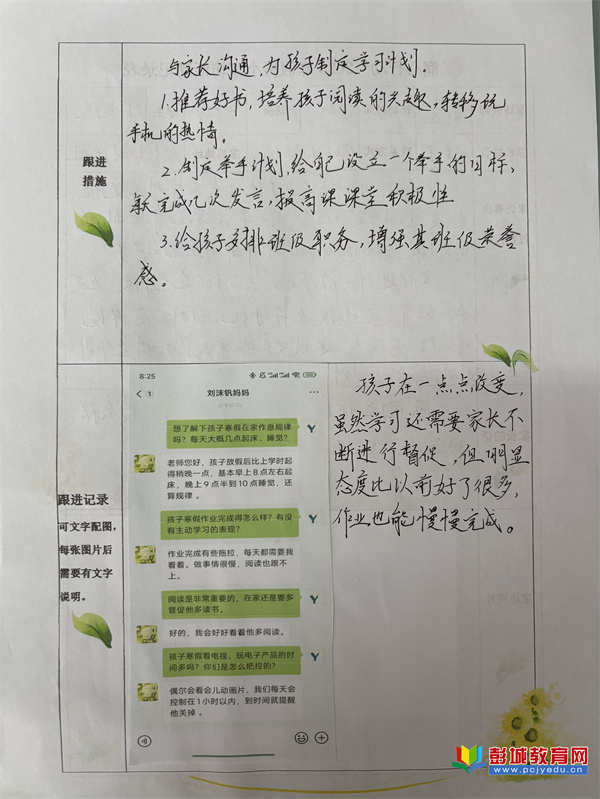 与家长沟通，为孩子制定学习计划.
1.推荐好书，培养孩子阅读的兴趣，转移玩
手机的热情。
2.制定举手计划，给自己设立一个举手的目标，
每天完成几次发言，提高课课堂积极性
3.给孩子安排班级职务，增强其班级荣誉
感。
跟进
措施
8:25
1
刘沫钒妈妈
想了解下孩子寒假在家作息规律
吗？每天大概几点起床，睡觉？
老师您好，孩子放假后比上学时起
得稍晚一点，基本早上8点左右起
床，晚上9点半到10点睡觉，还
算规律 。
孩子寒假作业完成得怎么样？有没
有主动学习的表现？
作业完成有些拖拉，每天都需要我
看着。做事情很慢，阅读也跟不
上。
阅读是非常重要的，在家还是要多
督促他多读书。
好的，我会好好看着他多阅读。
孩子寒假看电视、玩电子产品的时
间多吗？你们是怎么把控的？
偶尔会看会儿动画片，我们每天会
控制在1小时以内，到时间就提醒
他关掉 。
孩子在一点点改变，
虽然学习还需要家长不
断进行督促，但明显
态度比以前好了很多，
作业也能慢慢完成。
跟进记录
可文字配图，
每张图片后
需要有文字
说明。
彭城教育网
www.pcjyedu.cn